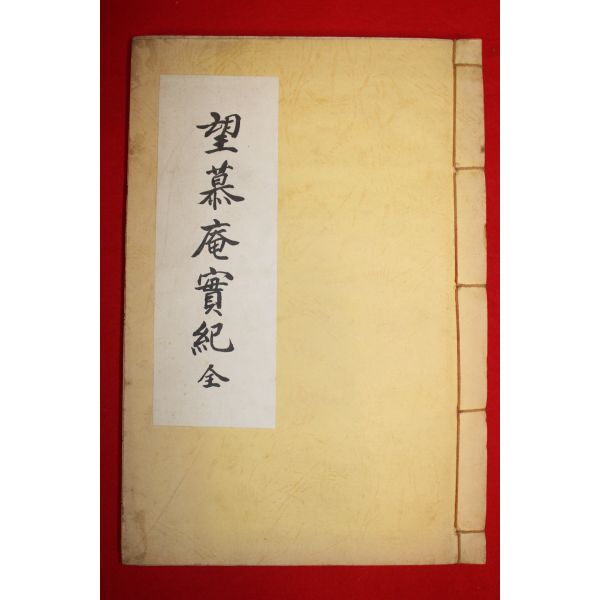 望慕庵實紀全